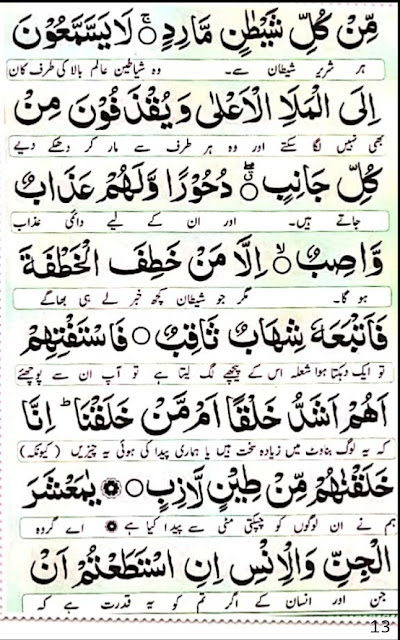 مِّنْ كُلِّ شَيْطٰنٍ مَّارِدٍ ۚ لَا يَسَّمَّعُوْنَ
ہر شریر شیطان سے۔ وہ شیاطین عالم بالا کی طرف کان
اِلَى الْمَلَاِ الْاَعْلٰى وَ يُقْذَفُوْنَ مِنْ
بھی نہیں لگا سکتے اور وہ ہر طرف سے مار کر دھکے دیے
كُلِّ جَانِبٍ ۖ دُحُوْرًا وَّلَهُمْ عَذَابٌ
جاتے ہیں۔ اور ان کے لیے دائمی عذاب
وَّاصِبٌ ۙ اِلَّا مَنْ خَطِفَ الْخَطْفَةَ
ہو گا۔ مگر جو شیطان کچھ خبر لے ہی بھاگے
فَاَتْبَعَهٗ شِهَابٌ ثَاقِبٌ ۝ فَاسْتَفْتِهِمْ
تو ایک دہکتا ہوا شعلہ اس کے پیچھے لگ لیتا ہے تو آپ ان سے پوچھئے
اَهُمْ اَشَدُّ خَلْقًا اَمْ مَّنْ خَلَقْنَا ؕ اِنَّا
کہ یہ لوگ بناوٹ میں زیادہ سخت ہیں یا ہماری پیدا کی ہوئی یہ چیزیں (کیونکہ)
خَلَقْنٰهُمْ مِّنْ طِيْنٍ لَّازِبٍ ۝ يٰمَعْشَرَ
ہم نے ان لوگوں کو چپکتی مٹی سے پیدا کیا ہے اے گروہ
الْجِنِّ وَالْاِنْسِ اِنِ اسْتَطَعْتُمْ اَنْ
جن اور انسان کے اگر تم کو یہ قدرت ہے کہ
13